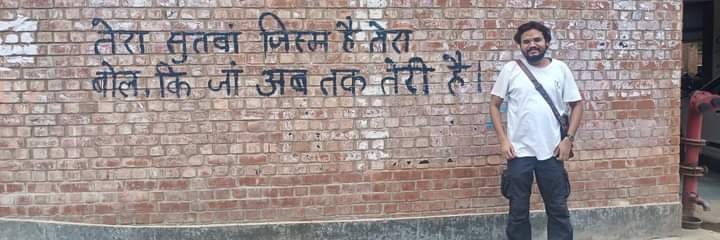 तेरा सुतवां जिस्म है तेरा
बोल, कि जां अब तक तेरी है।